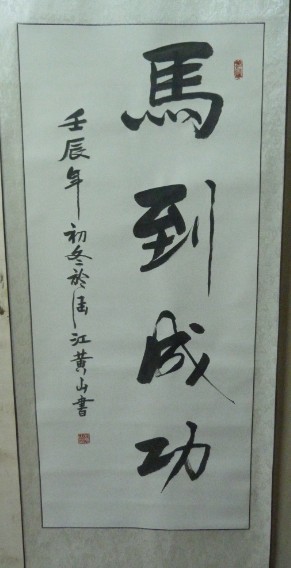 馬到成功
壬辰年初冬於涵江黄山書